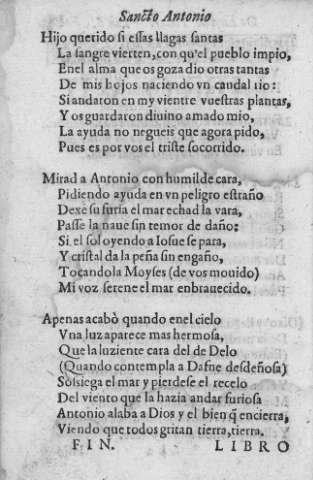 Sancto Antonio
Hijo querido si essas llagas santas
La sangre vierten, con qu'el pueblo impio,
Enel alma que os goza dio otras tantas
De mis hojos naciendo vn caudal rio:
Si andaron en my vientre vuestras plantas,
Y os guardaron diuino amado mio,
La ayuda no negueis que agora pido,
Pues es por vos el triste socorrido.
Mirad a Antonio con humilde cara,
Pidiendo ayuda en vn peligro estraño
Dexe su furia el mar echad la vara,
Passe la naue sin temor de daño:
Si el sol oyendo a Iosue se para,
Y cristal da la peña sin engaño,
Tocandola Moyses (de vos mouido)
Mi voz serene el mar enbrauecido.
Apenas acabò quando enel cielo
Vna luz aparece mas hermosa,
Que la luziente cara del de Delo
(Quando contempla a Dafne desdeñosa)
Sossiega el mar y pierdese el recelo
Del viento que la hazia andar furiosa
Antonio alaba a Dios y el bien q̃ encierra,
Viendo que todos gritan tierra, tierra.
FIN. LIBRO